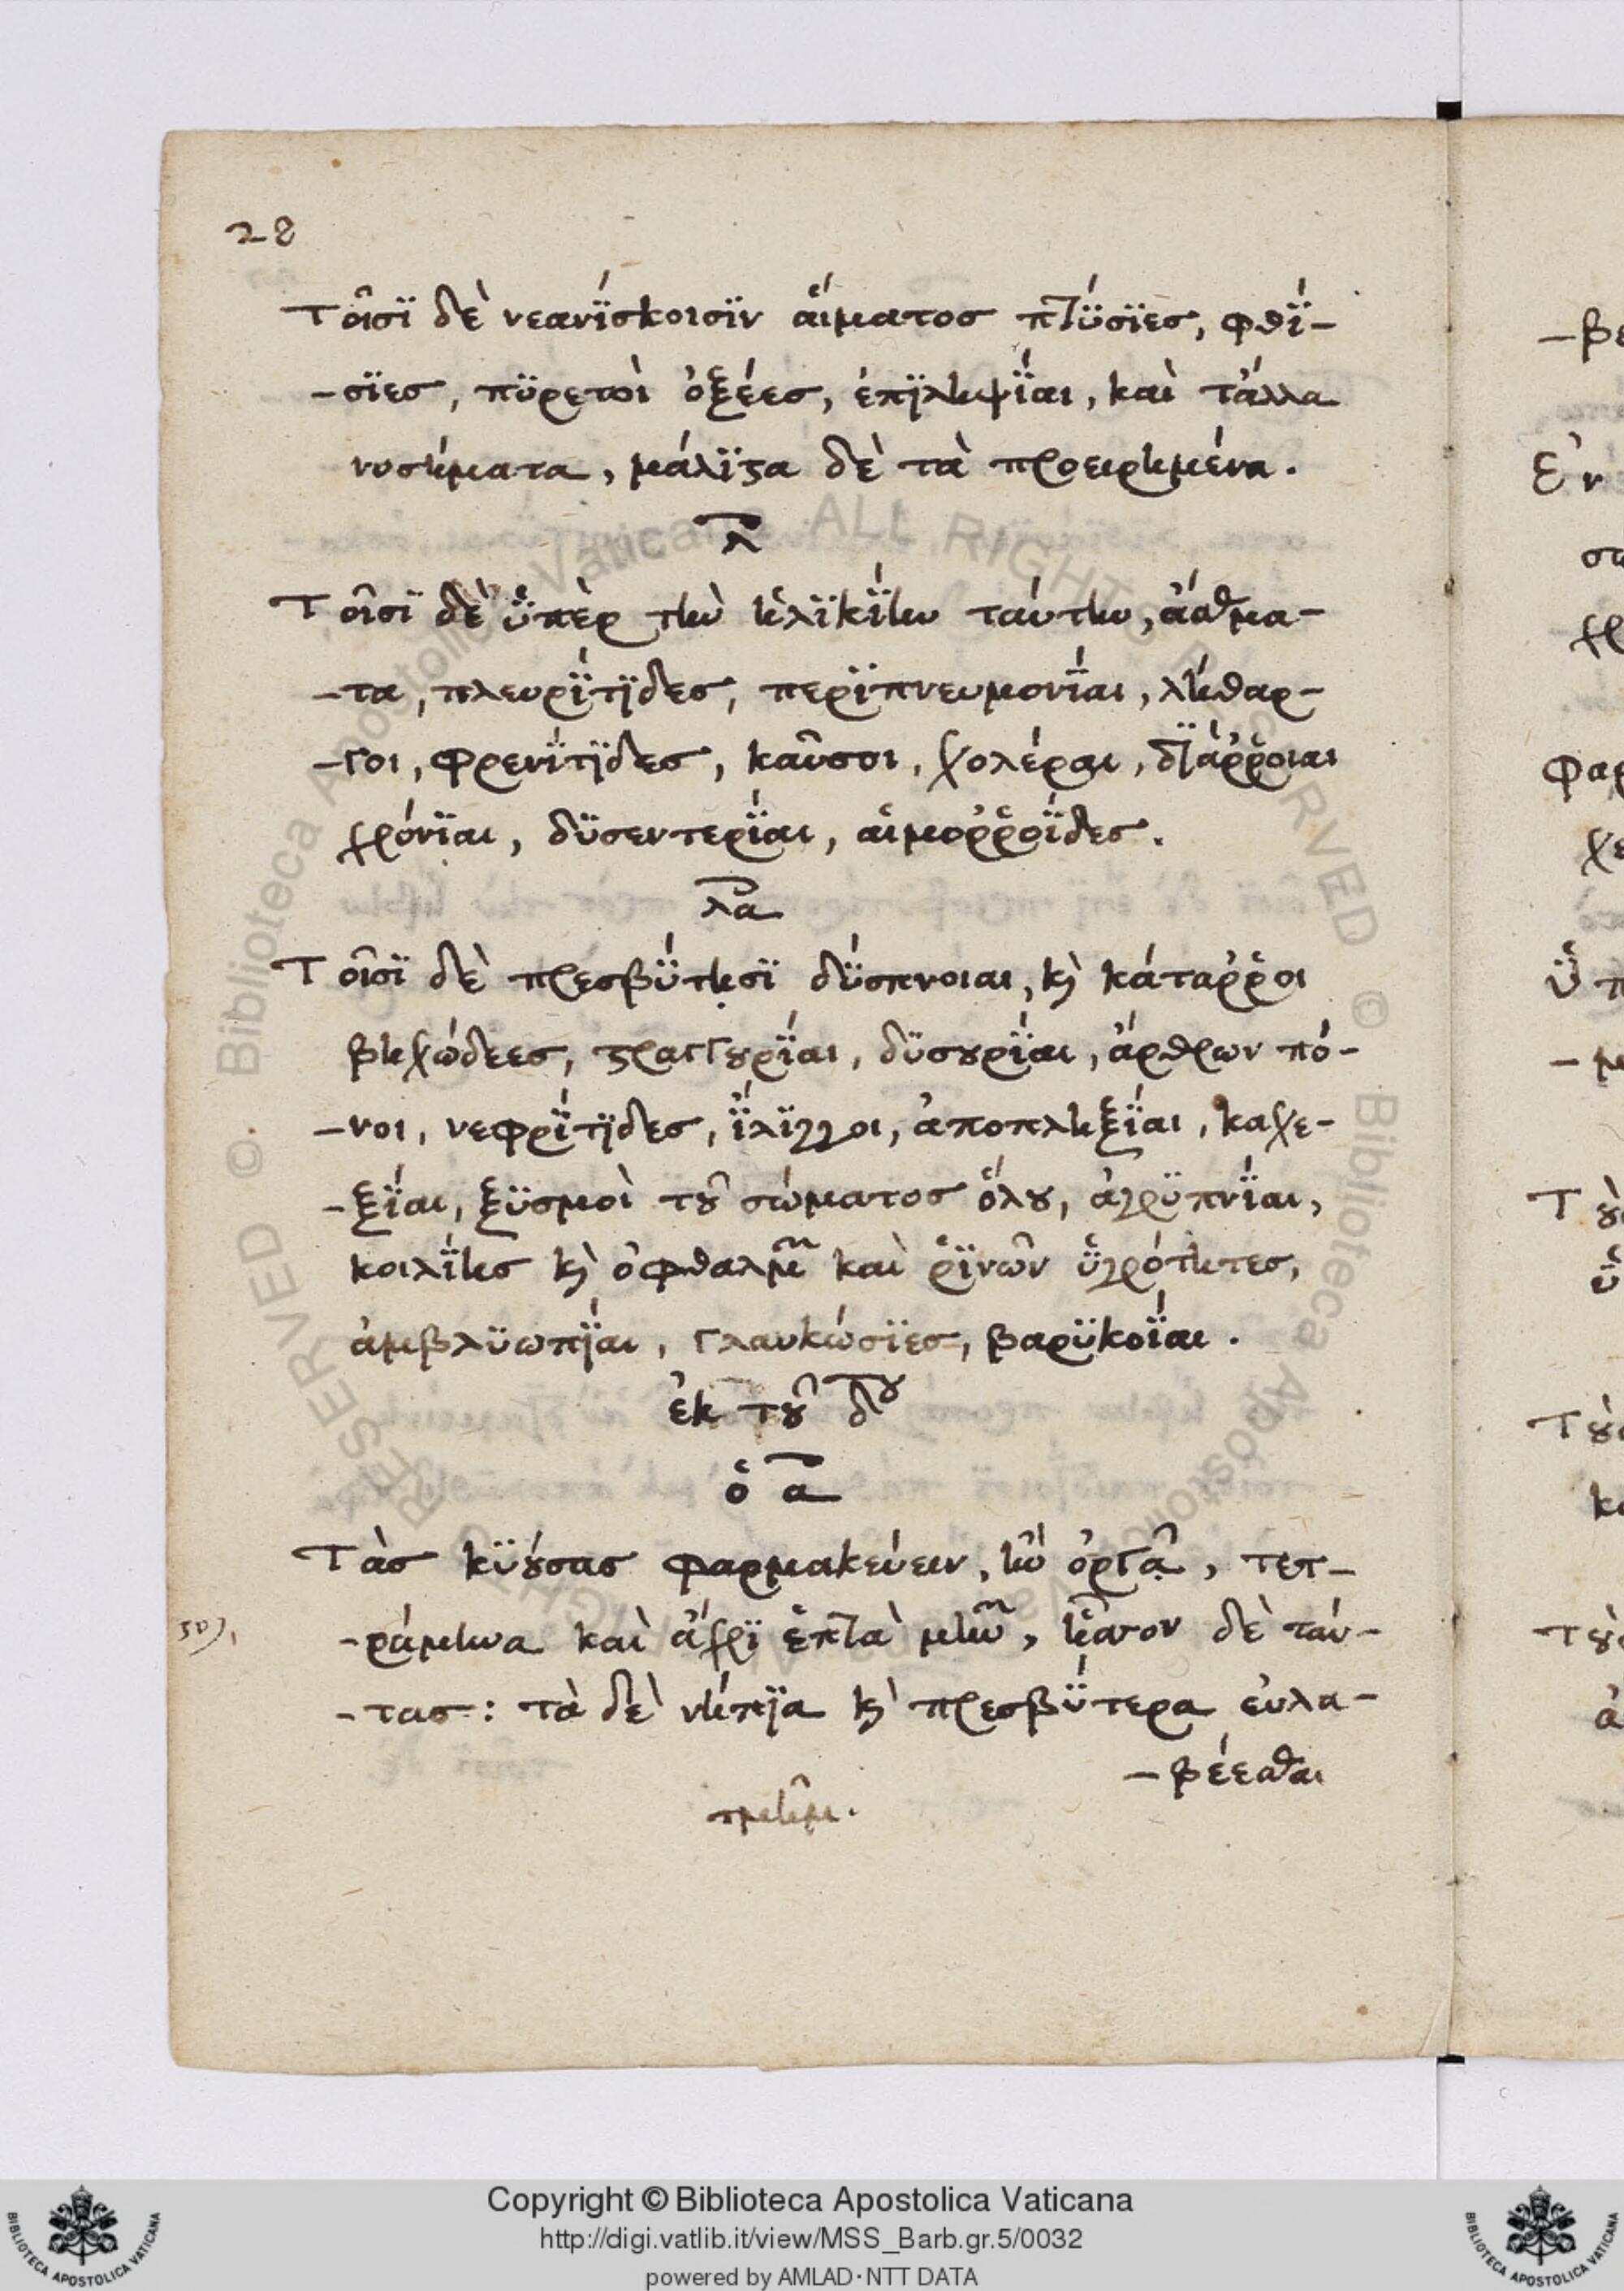 28
Τοῖσϊ δὲ νεανΐσκοισϊν αἵματος πτΰσϊες, φθΐ-
-σϊες, πϋρετοὶ ὀξέες, ἐπϊληψΐαι, καὶ τἄλλα
νοσήματα, μάλϊϛα δὲ τὰ προειρημένα.
λ
Τοῖσϊ δὲ ὑπὲρ τὴν ἡλϊκΐην ταύτην, ἄσθμα-
-τα, πλευρΐτϊδες, περϊπνευμονΐαι, λήθαρ-
-γοι, φρενΐτϊδες, καῦσοι, χολέραι, δϊάῤῥοιαι
χρόνϊαι, δϋσεντερΐαι, αἱμοῤῥοΐδες.
λα
Τοῖσϊ δὲ πρεσβΰτῃσϊ δΰσπνοιαι, κỳ κάταῤῥοι
βηχώδεες, ϛραγγȣρΐαι, δϋσȣρΐαι, ἄρθρων πό-
-νοι, νεφρΐτϊδες, ἴλϊγγοι, ἀποπληξΐαι, καχε-
-ξΐαι, ξϋσμοὶ τȣ͂ σώματος ὅλȣ, ἀγρϋπνΐαι,
κοιλΐης κỳ ὀφθαλμῶν καὶ ῥϊνῶν ὑγρότητες,
ἀμβλϋωπΐαι, γλαυκώσϊες, βαρϋκοΐαι.
ἐκ τȣ͂ δȣ
ὁ α
Τὰς κϋȣ́σας φαρμακεύειν, ἢν ὀργᾷ, τετ-
-ράμηνα καὶ ἄχρϊ ἑπτὰ μηνῶν, ἧσσον δὲ ταύ-
-τας: τὰ δὲ νήπϊα κỳ πρεσβΰτερα εὐλα-
-βέεσθαι
Copyright © Biblioteca Apostolica Vaticana
http://digi.vatlib.it/view/MSS_Barb.gr.5/0032
powered by AMLAD·NTT DATA